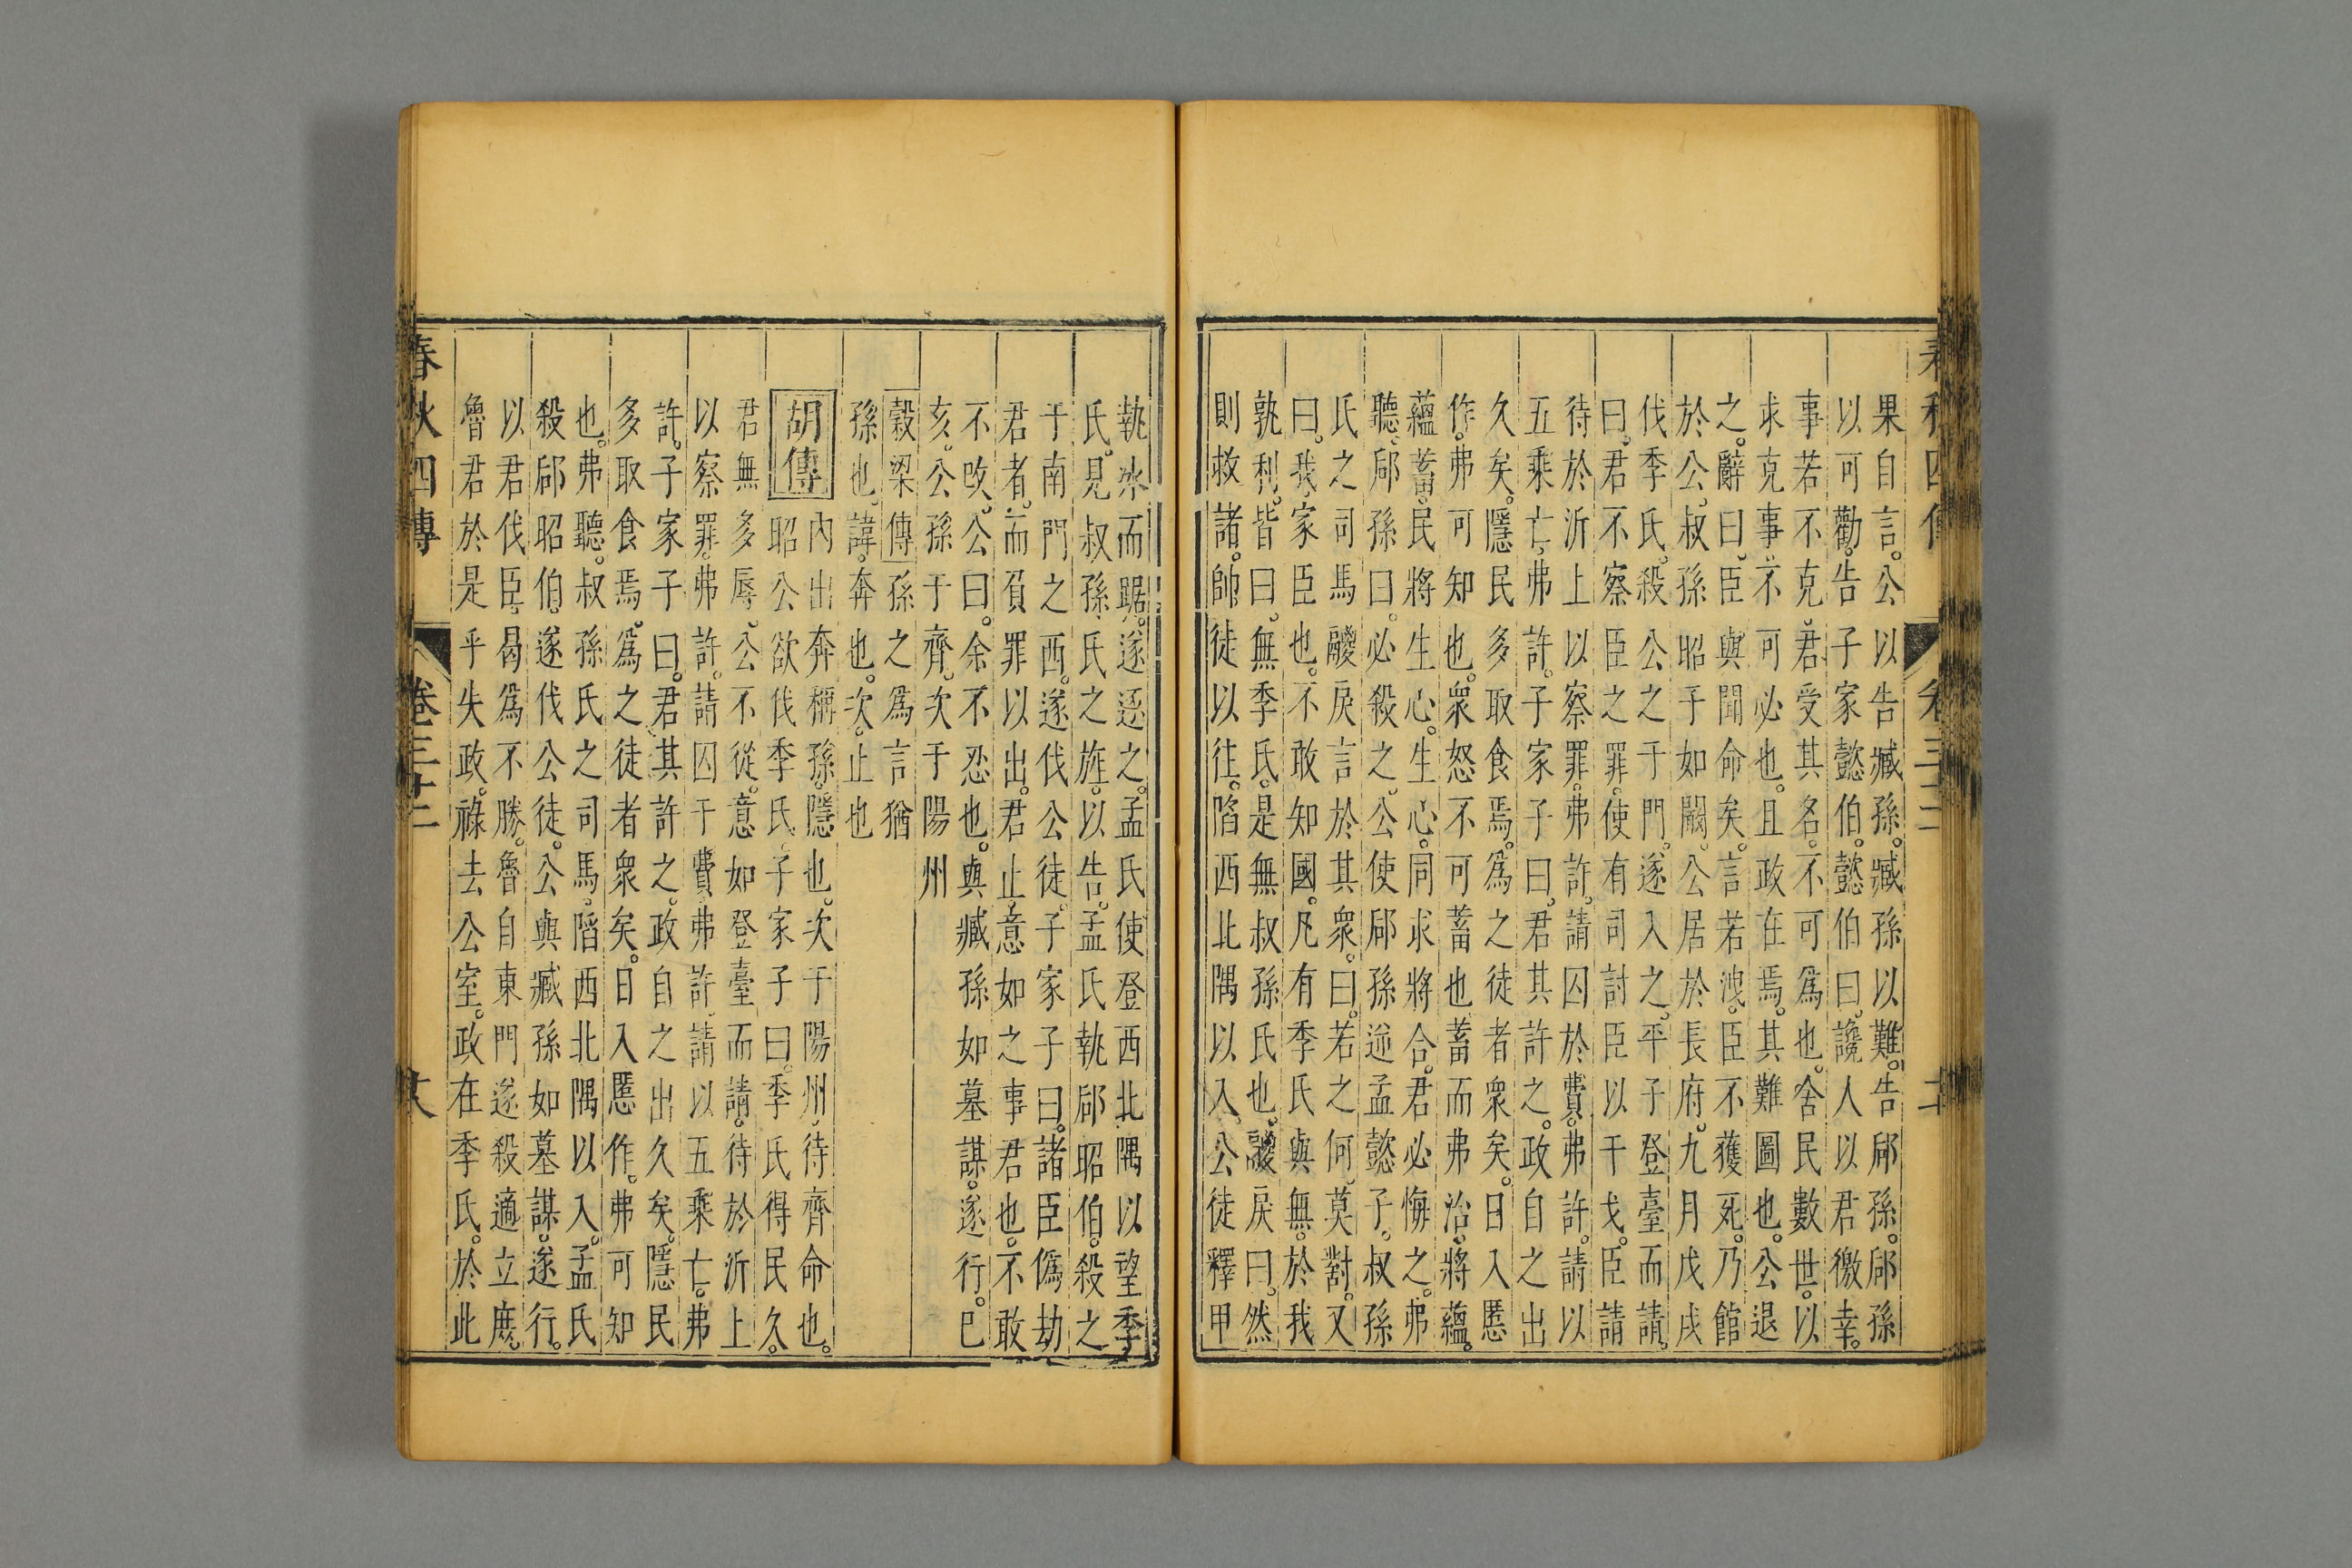 果自言公以告臧孫臧孫以難告郈孫郈孫
以可勸告子家懿伯懿伯曰讒人以君徼幸
事若不克君受其名不可爲也舍民數世以
求克事不可必也且政在焉其難圖也公退
之辭曰臣與聞命矣言若洩臣不獲死乃館
於公叔孫昭子如闞公居於長府九月戊戌
伐季氏殺公之于門遂入之平子登臺而請
曰君不察臣之罪使有司討臣以干戈臣請
待於沂上以察罪弗許請囚於費弗許請以
五乘亡弗許子家子曰君其許之政自之出
久矣隱民多取食焉爲之徒者衆矣日入慝
作弗可知也衆怒不可蓄也蓄而弗治將蘊
蘊蓄民將生心生心同求將合君必悔之弗
聽郈孫曰必殺之公使郈孫逆孟懿子叔孫
氏之司馬鬷戾言於其衆曰若之何莫對又
曰我家臣也不敢知國凡有季氏與無於我
孰利皆曰無季氏是無叔孫氏也鬷戾曰然
則救諸帥徒以往陷西北隅以入公徒釋甲
執冰而踞遂逐之孟氏使登西北隅以望季
氏見叔孫氏之旌以告孟氏執郈昭伯殺之
于南門之西遂伐公徒子家子曰諸臣僞劫
君者而負罪以出君止意如之事君也不敢
不改公曰余不忍也與臧孫如墓謀遂行已
亥公孫于齊次于陽州
穀梁傳孫之爲言猶
孫也諱奔也次止也
胡傳
內出奔稱孫隱也次于陽州待齊命也
昭公欲伐季氏子家子曰季氏得民久
君無多辱公不從意如登臺而請待於沂上
以察罪弗許請囚于費弗許請以五乘亡弗
許子家子曰君其許之政自之出久矣隱民
多取食焉爲之徒者衆矣日入慝作弗可知
也弗聽叔孫氏之司馬陷西北隅以入孟氏
殺郈昭伯遂伐公徒公與臧孫如墓謀遂行
以君伐臣曷爲不勝魯自東門遂殺適立庶
魯君於是乎失政祿去公室政在季氏於此
春秋四傳
卷三十二